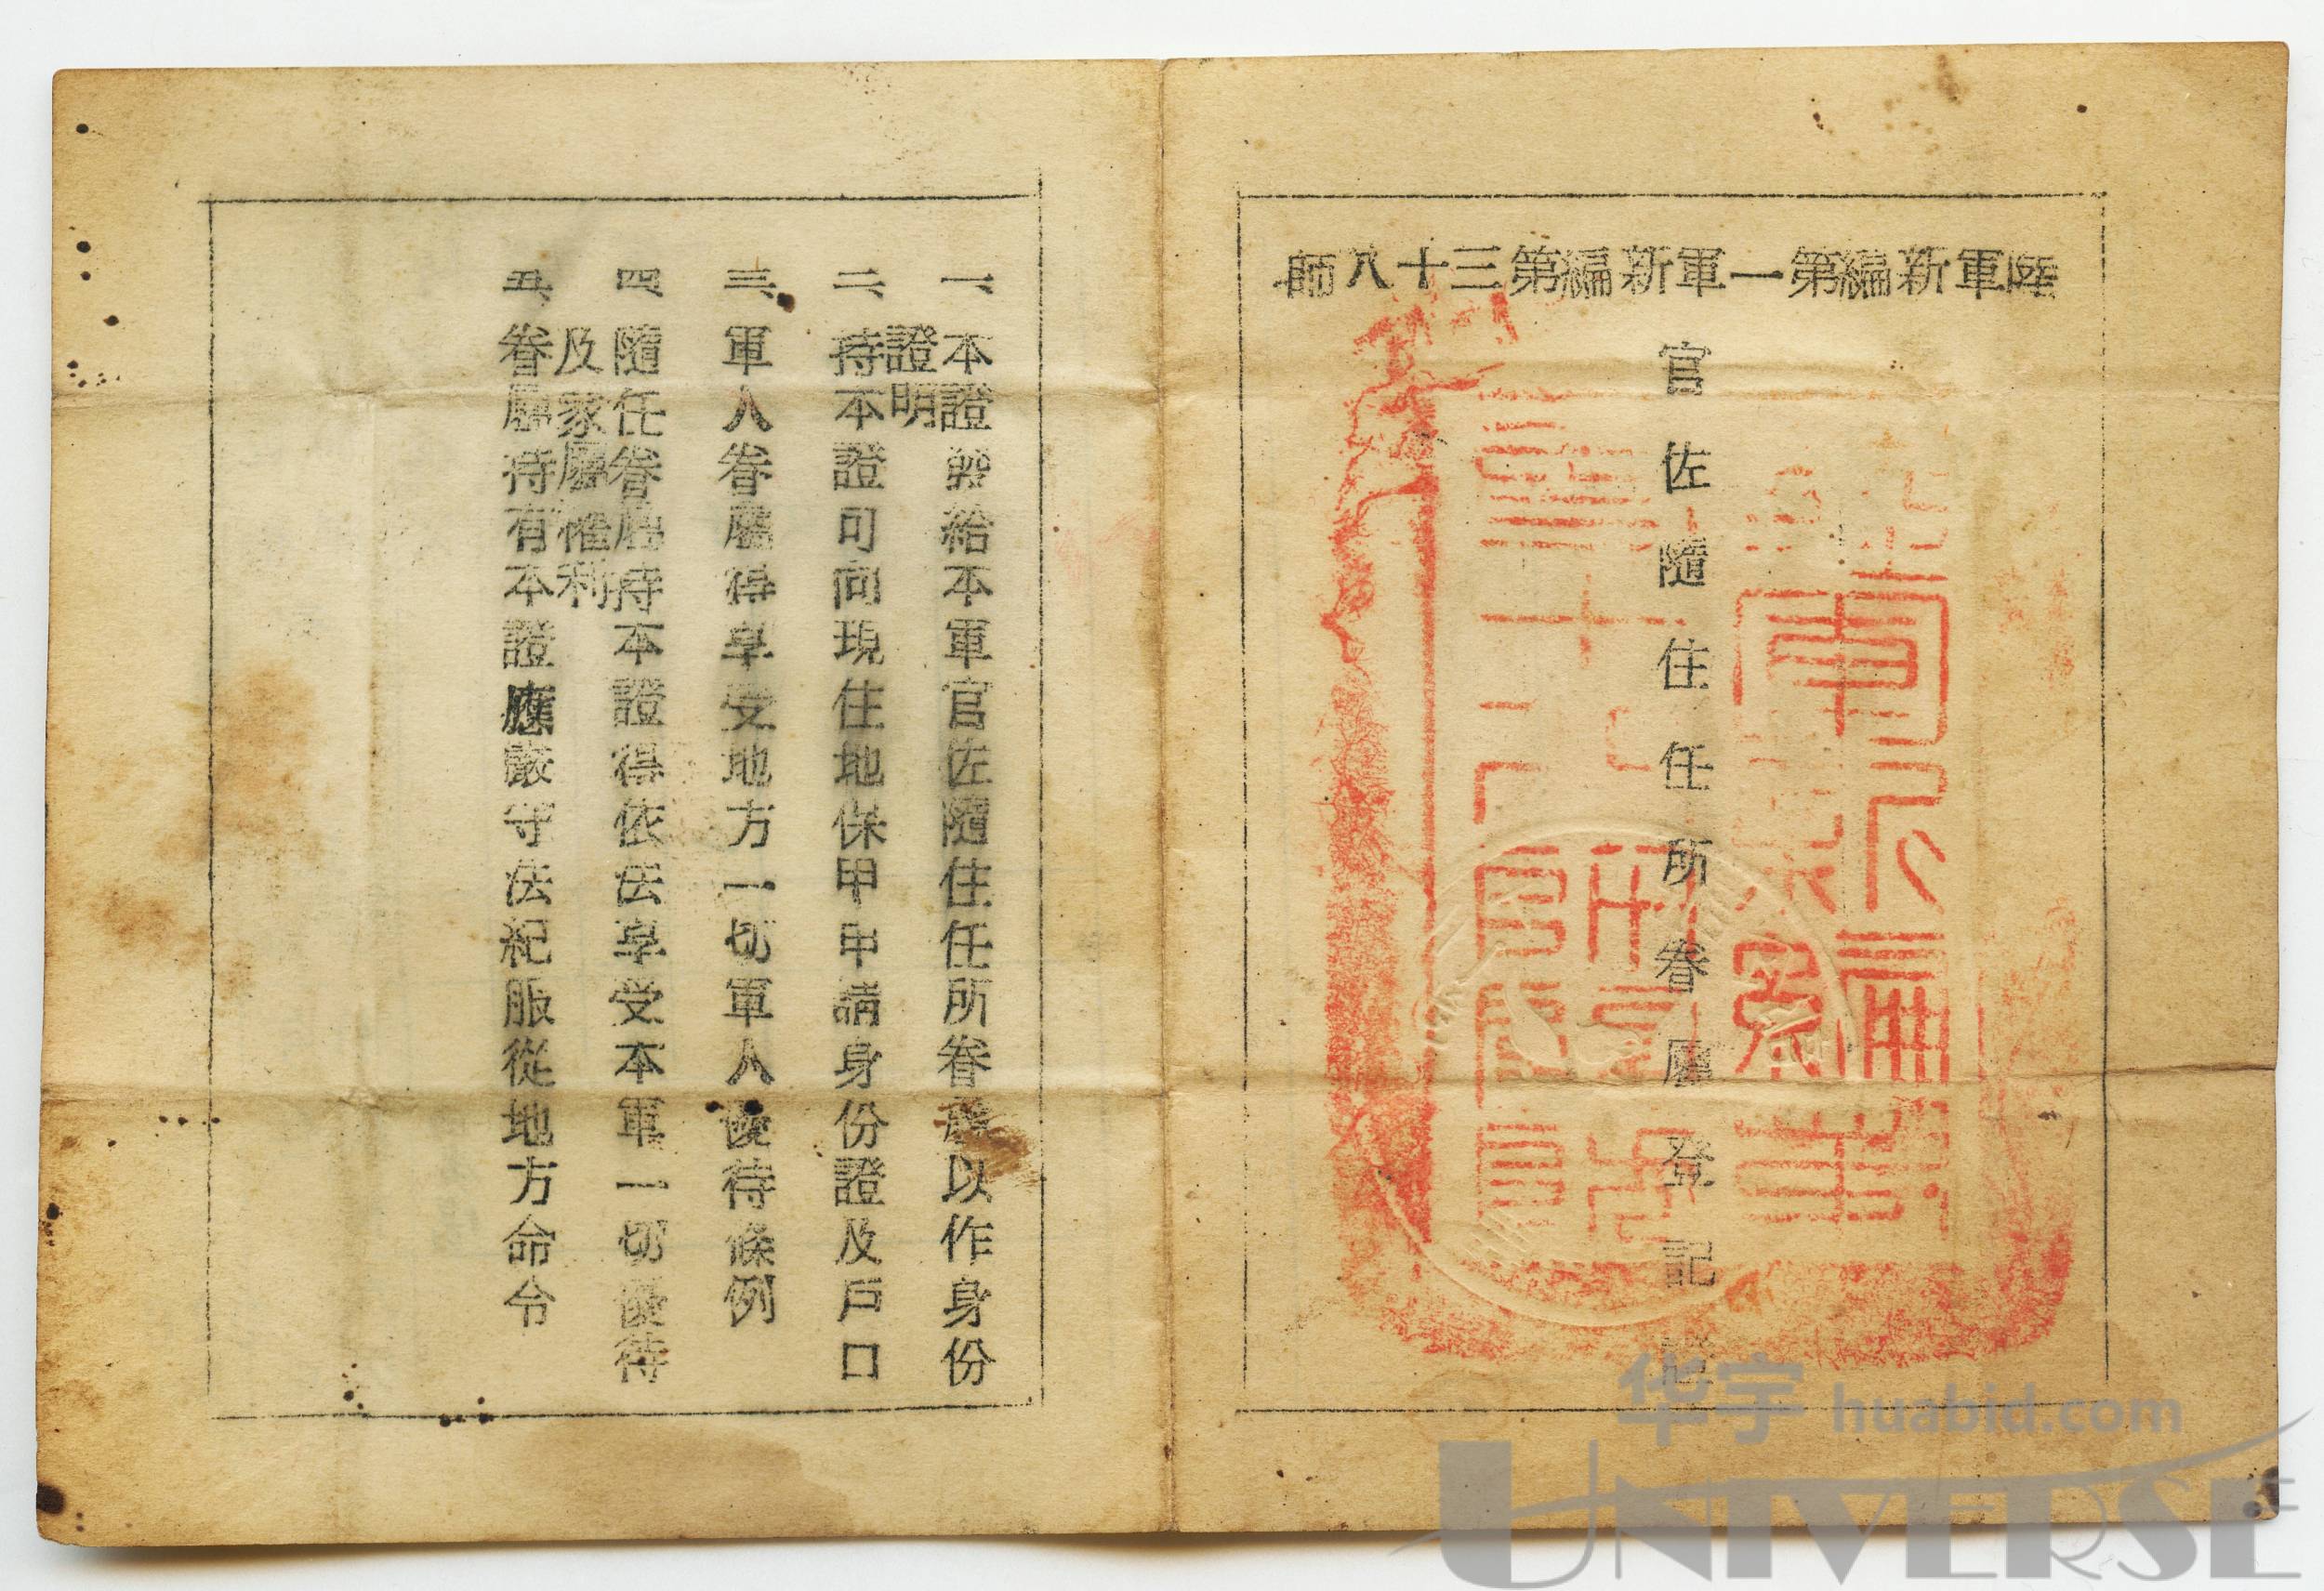 陸軍新編第一軍新編第三十八師
官佐隨住任所眷屬登記證
一、本證發給本軍官佐隨住任所眷屬以作身份
證明
二、持本證可向現住地保甲申請身份證及戶口
三、軍人眷屬得享受地方一切軍人優待條例
四、隨任眷屬持本證得依法享受本軍一切優待
及家屬權利
五、眷屬持有本證應嚴守法紀服從地方命令
华宇 huabid.com
UNIVERSE